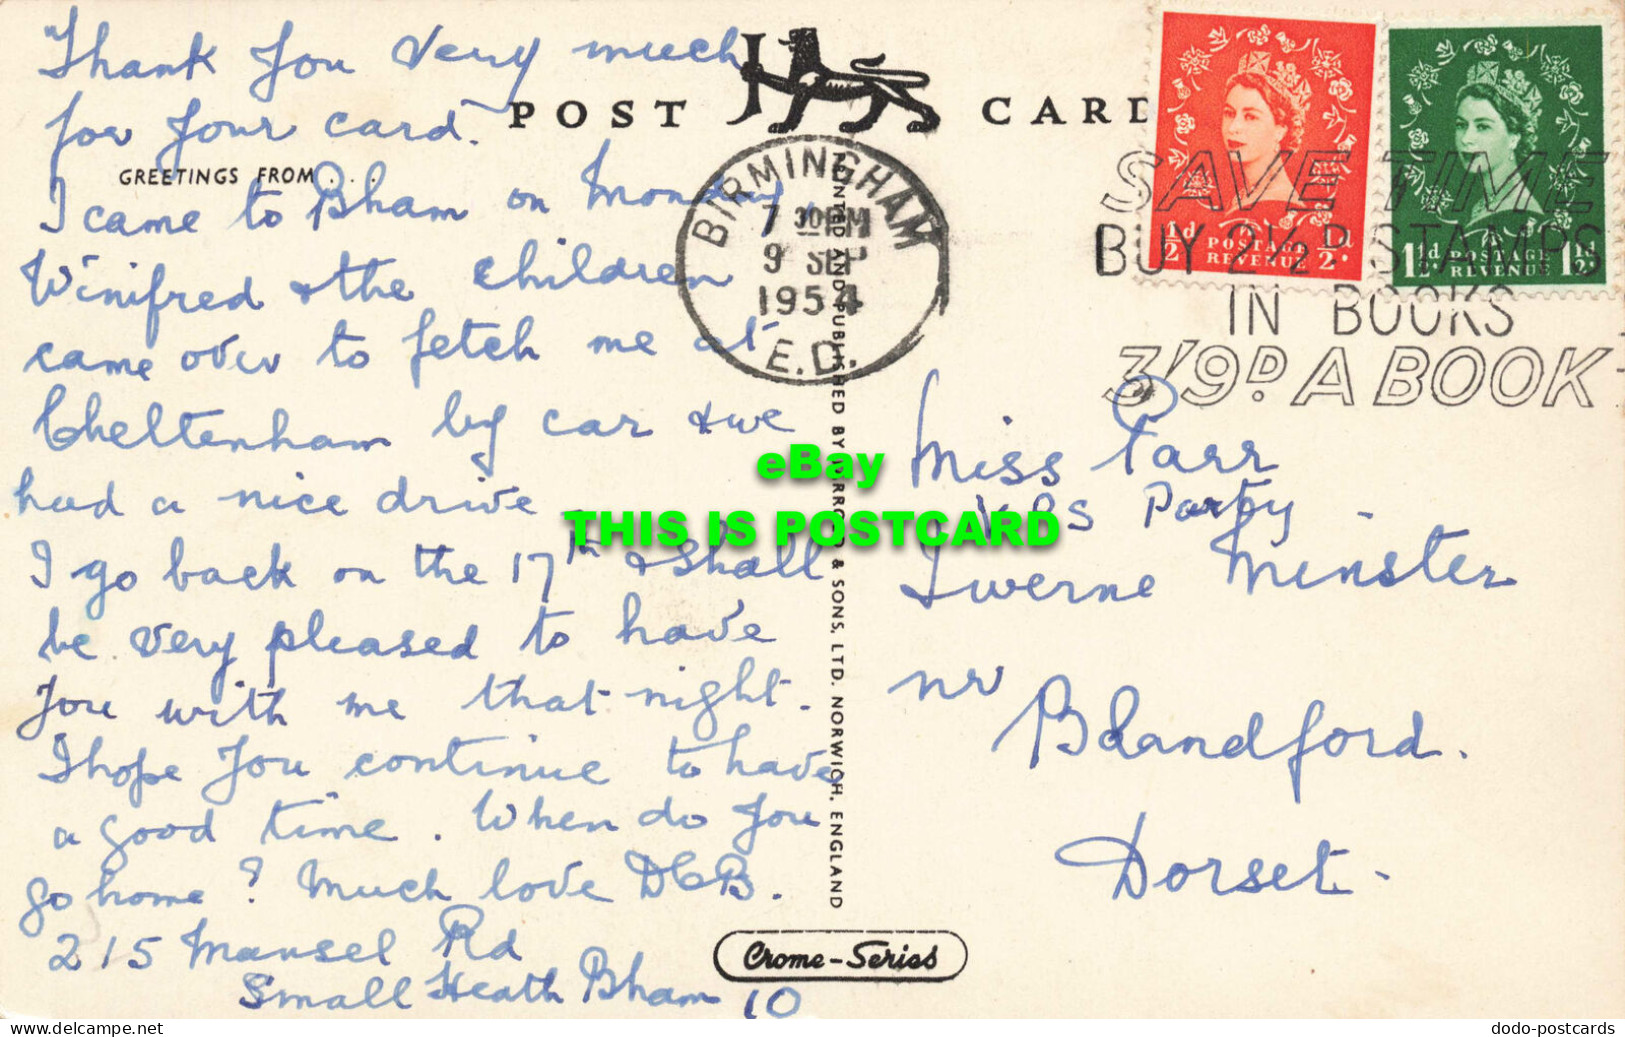 Thank you very much
for your card.
I came to Bham on Monday.
Winifred & the children
came over to fetch me at
Cheltenham by car & we
had a nice drive
I go back on the 17th & shall
be very pleased to have
you with me that night.
I hope you continue to have
a good time. When do you
go home? Much love DCB.
215 Mansel Rd
Small Heath Bham 10
POST CARD
GREETINGS FROM . . .
BIRMINGHAM
7 30PM
9 SEP
1954
E.D.
PRINTED AND PUBLISHED BY JARROLD & SONS, LTD. NORWICH, ENGLAND
Crome-Series
½d POSTAGE REVENUE ½d.
1½d POSTAGE REVENUE 1½d.
SAVE TIME
BUY 2½D. STAMPS
IN BOOKS
3/9D A BOOK
Miss Parr
Party
Iwerne Minster
nr
Blandford.
Dorset.
eBay
THIS IS POSTCARD
www.delcampe.net
dodo-postcards